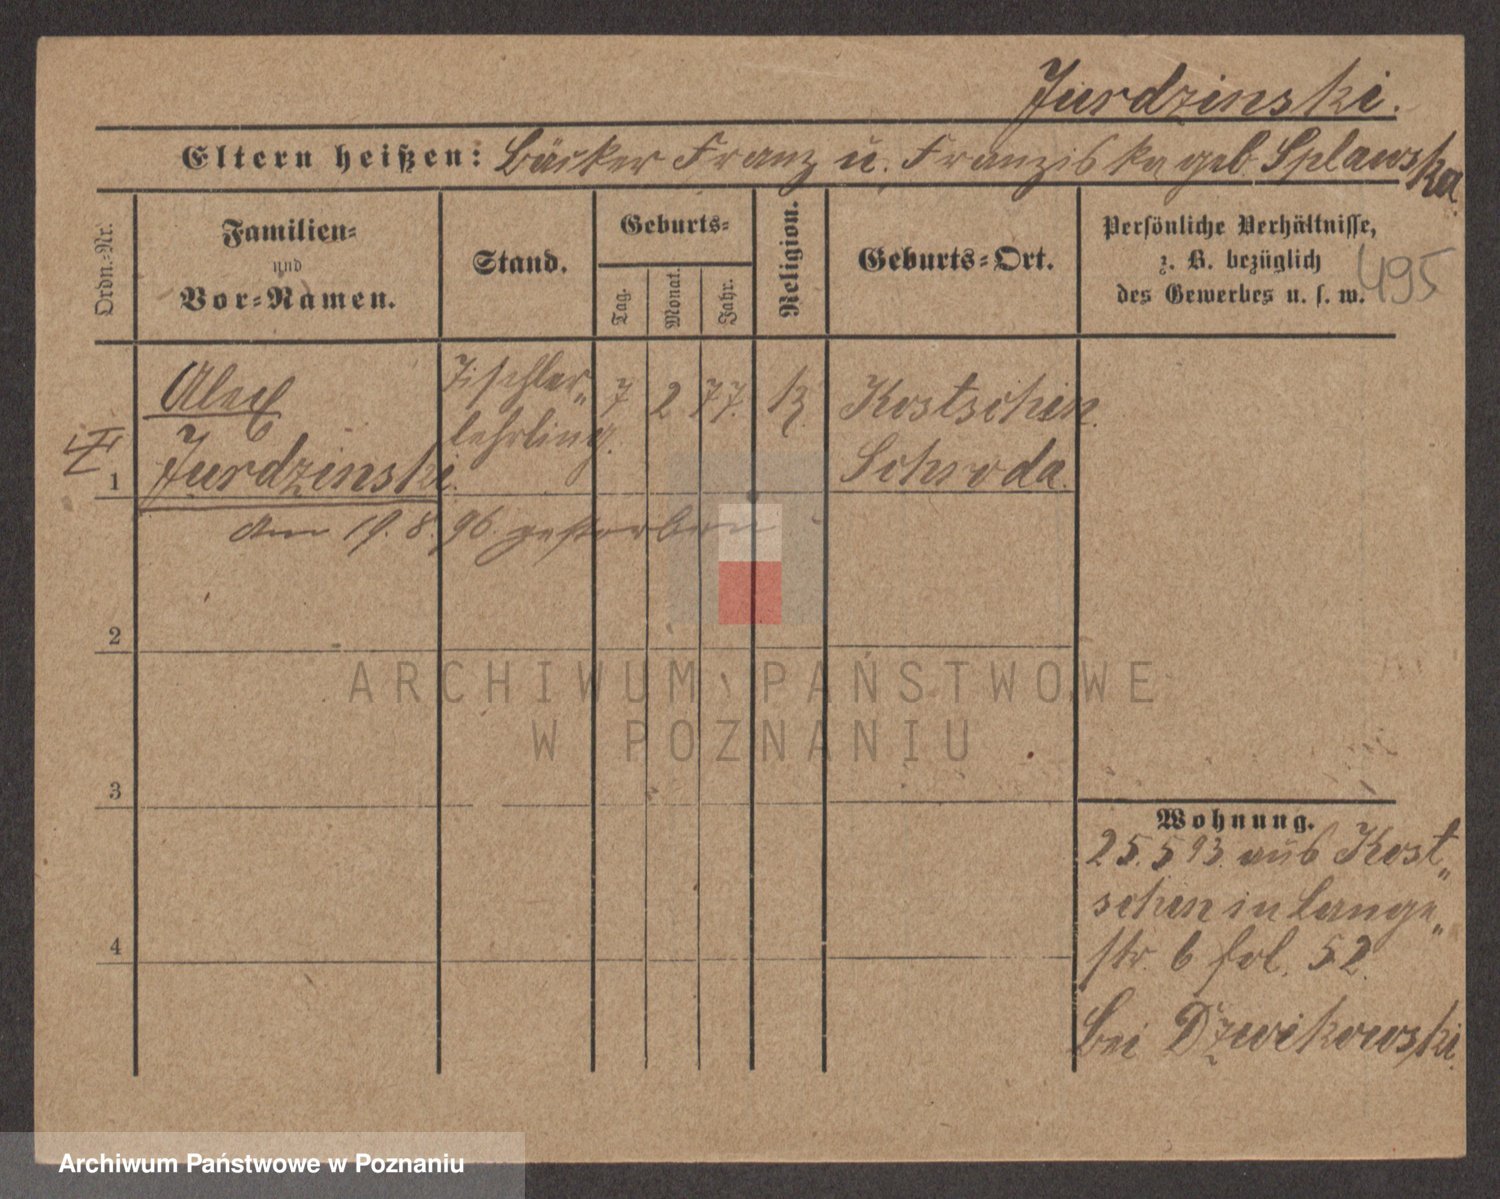 Jurdzinski.
Eltern heißen: Bäcker Franz u. Franziska geb. Splawska
Ordn.-Nr.
Familien-
und
Vor-Namen.
Stand.
Geburts-
Tag.
Monat.
Jahr.
Religion.
Geburts-Ort.
Persönliche Verhältnisse,
z. B. bezüglich
des Gewerbes u. s. w.
495
1
Alex
Jurdzinski.
Tischler„
lehrling.
7
2
77.
k.
Kostschin.
Schroda.
am 19. 8. 96. gestorben
2
3
4
Wohnung.
25. 5 93. aus Kost„
schin in Lange„
str. 6 fol. 52.
bei Dzwikowski.
ARCHIWUM PAŃSTWOWE
W POZNANIU
Archiwum Państwowe w Poznaniu